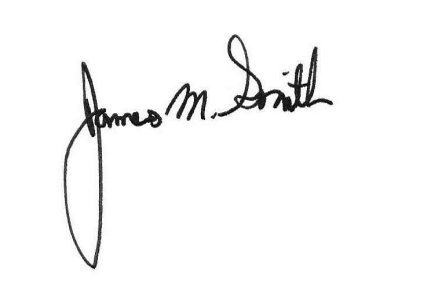 James M. Smith